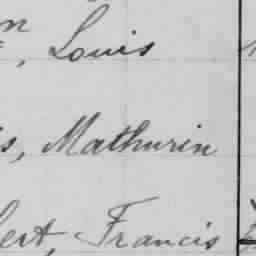 , Louis
s, Mathurin
ert, Francis